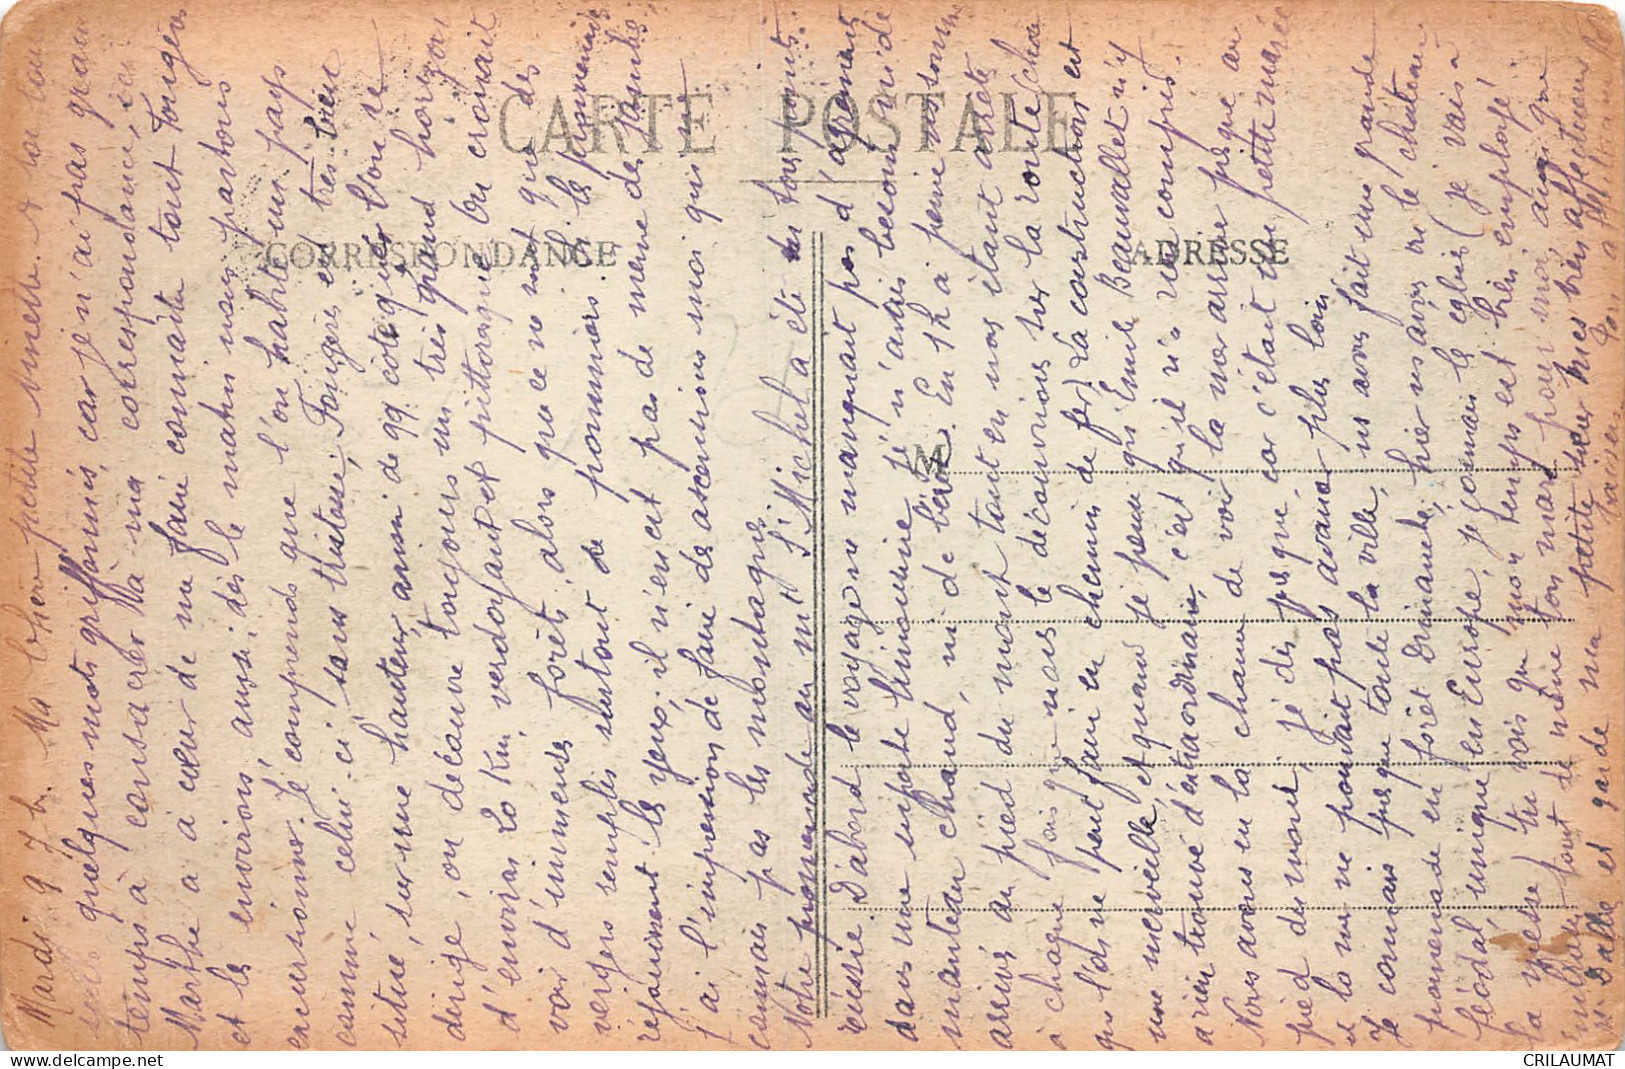 CARTE POSTALE
CORRESPONDANCE
ADRESSE
M
Mardi 9 7h. Ma chère petite minette. A toi
quelques mots griffonnés, car je n'ai pas grand
temps à consacrer à ma correspondance, ici
Marthe a à cœur de me faire connaître tout Fougères
et les environs, aussi dès le matin nous partons
excursionner. Je comprends que l'on habite un pays
comme celui-ci sans tristesse, Fougères est très bien
situé, sur une hauteur, aussi de qq côté que l'on se
dirige, on découvre toujours un très grand horizon
d'environ 20 Km, verdoyant et pittoresque. On croirait
voir d'immenses forêts, alors que ce ne sont que des
vergers remplis surtout de pommiers.
réjouissent les yeux, il n'en est pas de même des jambes,
j'ai l'impression de faire des ascensions moi qui ne
connais pas les montagnes.
Notre promenade au mt St Michel a été en tous points
réussie. D'abord le voyage ne manquait pas d'agrément
dans une superbe limousine, je n'avais besoin ni de
manteau chaud, ni de béret. En 1h à peine ns sommes
arrivés au pied du mont tout en nous étant arrêtés
à chaque fois que nous le découvrions sur la route (chose
que l'on ne peut faire en chemin de fer) La construction est
une merveille, et quand je pense qu'Emile Beauvallet n'y
a rien trouvé d'extraordinaire, c'est qu'il n'a rien compris.
Nous avons eu la chance de voir la mer arriver presque au
pied des murs, je dis presque, car c'était une petite marée
et la mer ne pouvait pas avancer plus loin
Je connais presque toute la ville, ns avons fait une grande
promenade en forêt Dimanche, hier ns avons vu le château
féodal, unique en Europe, je connais les églises (je vais à
la messe) tu vois que mon temps est bien employé
tout de même ton mari pour moi ainsi que
ma petite sœur mes très affectueux
et garde